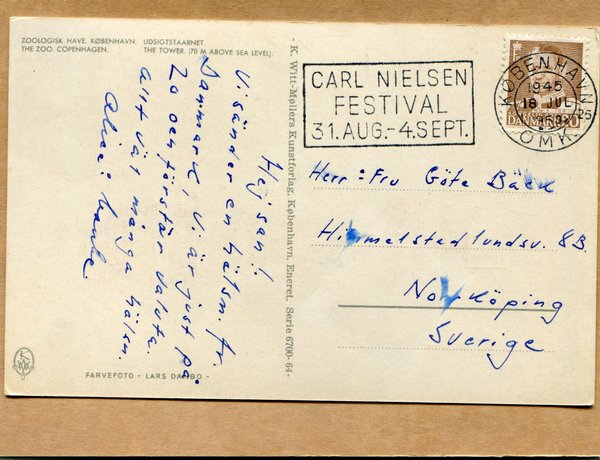 ZOOLOGISK HAVE, KØBENHAVN. UDSIGTSTAARNET.
THE ZOO, COPENHAGEN. THE TOWER. (70 M ABOVE SEA LEVEL).
Hej san!
Vi sänder en hälsn. fr.
Danmark, Vi är just på
Zo och förstår valuta.
allt vät många hälsn.
Alice:
FARVEFOTO - LARS
- K. Witt-Møllers Kunstforlag, København. Eneret. Serie 6700-64 -
CARL NIELSEN
FESTIVAL
31.AUG.-4.SEPT.
KØBENHAVN
1945
18 JUL
1953
25
OMK.
Herr: Fru Göte Bäck
Himmelstadlundsv. 8B.
Norrköping
Sverige